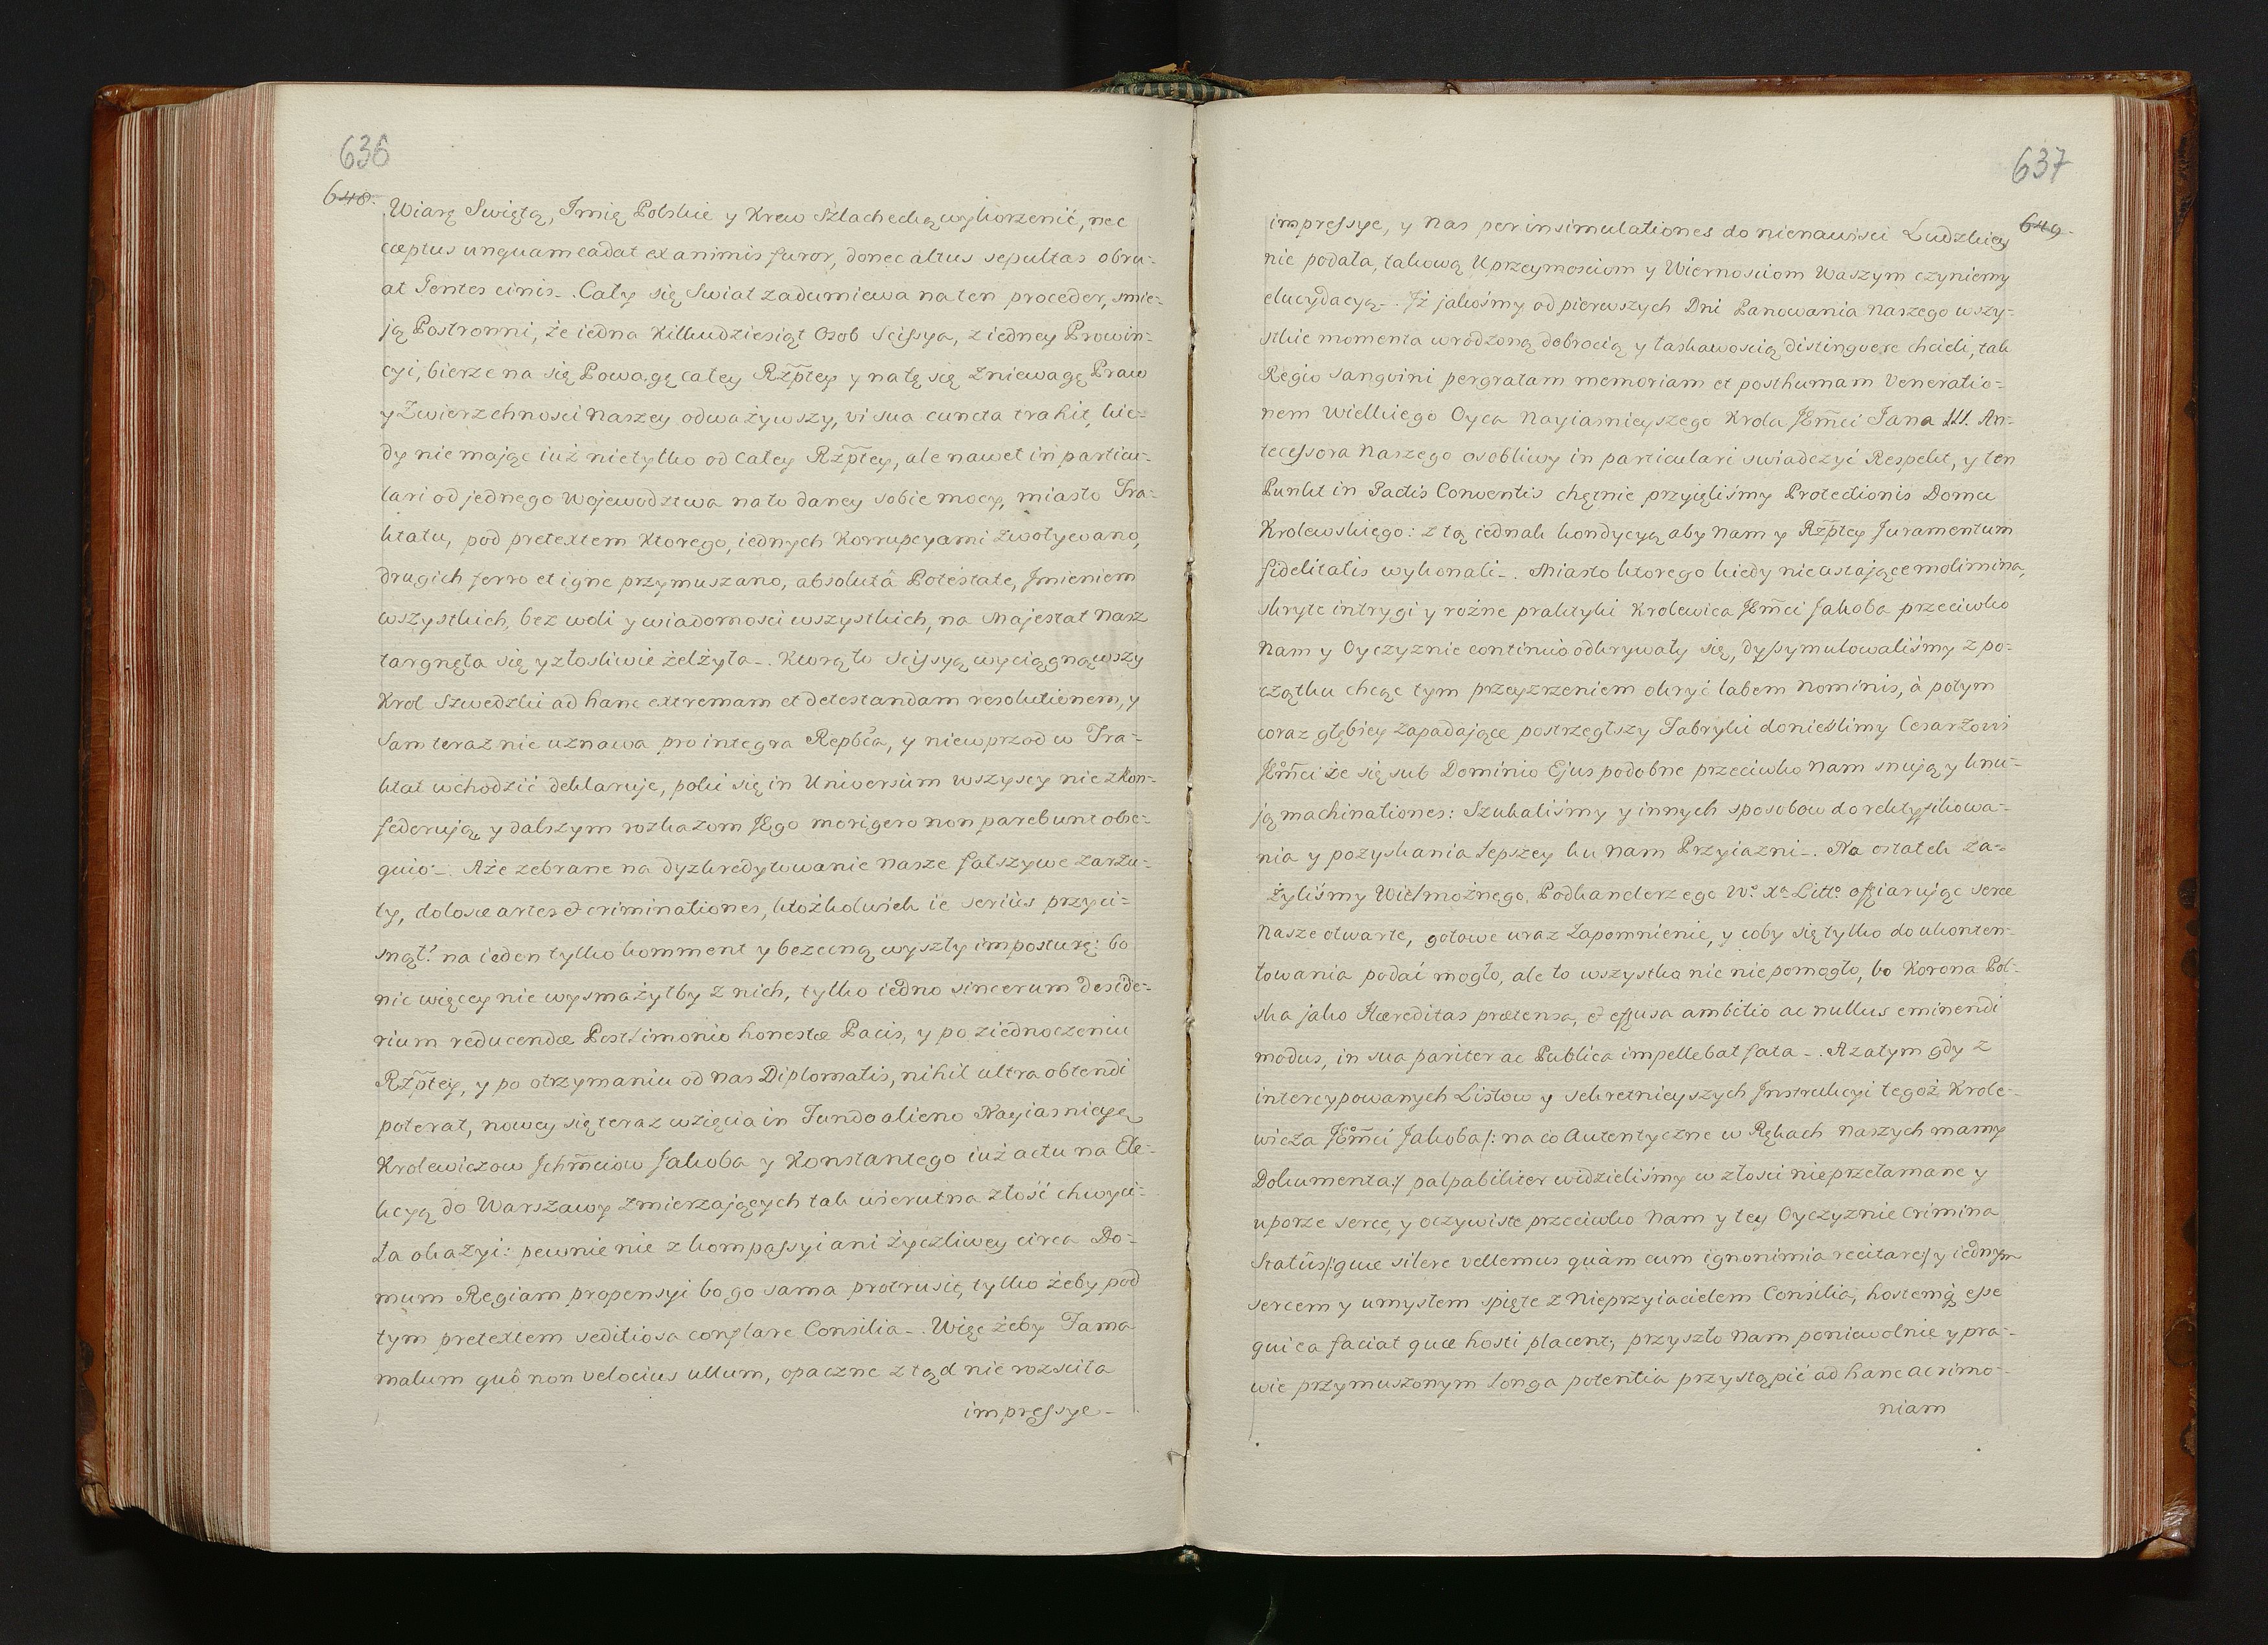 636
648.
Wiarę Swiętą, Imię Polskie y Krew Szlachecką wykorzenić, nec
cæptus unquam cadat ex animis furor, donec altus sepultas obru-
at Gentes cinis_. Cały się Swiat zadumiewa na ten proceder, smie-
ją Postronni, że iedna Kilkudziesiąt Osob Scissya, z iedney Prowin-
cyi, bierze na się Powagę całey Rzptey y na tę się Zniewagę Praw
y Zwierzchnosci Naszey odważywszy, vi sua cuncta trahit, kie-
dy nie mając iuż nietylko od Całey Rzptey, ale nawet in particu-
lari od jednego Wojewodztwa na to daney sobie mocy, miasto Tra-
ktatu, pod pretextem Ktorego, iednych Korrupcyami zwoływano,
drugich ferro et igne przymuszano, absolutâ Potestate, Jmieniem
wszystkich, bez woli y wiadomosci wszystkich, na Majestat Nasz
targnęła się y złosliwie zelżyła_. Kworą to Scissyą wyciągnąwszy
Krol Szwedzki ad hanc extremam et detestandam resolutionem, y
Sam teraz nie uznawa pro integra Repbca, y niewprzod w Tra-
ktat wchodzić deklaruje, poki się in Universum wszyscy nie zkon-
federują, y dalszym rozkazom JEgo morigero non parebunt obse-
quio_. Aże zebrane na dyzkredytowanie Nasze fałszywe zarzu-
ty, dolosæ artes & criminationes, ktożkolwiek ie serius przyci-
snął? na ieden tylko komment y bezecną wyszły imposturę: bo
nic więcey nie wysmażyłby z nich, tylko iedno sincerum deside-
rium reducendæ Postlimonio honestæ Pacis, y po ziednoczeniu
Rzptey, y po otrzymaniu od Nas Diplomatis, nihil ultra obtendi
poterat, nowey się teraz wzięcia in Fundo alieno Nayiasnieysz
Krolewiczow Jchmciow Jakoba y Konstantego iuż actu na Ele-
kcyą do Warszawy zmierzających tak wierutna złość chwyci-
ła okazyi: pewnie nie z kompassyi ani życzliwey circa Do-
mum Regiam propensyi bo go sama protrusit, tylko żeby pod
tym pretextem seditiosa conflare Consilia_. Więc żeby Fama
malum quô non velocius ullum, opaczne ztąd nie rozsiła
impressye_
637
649
impressye, y Nas per insimulationes do nienawisci Ludzkiey
nie podała, takową Uprzeymosciom y Wiernosciom Waszym czyniemy
elucydacyą_. Jż jakośmy od pierwszych Dni Panowania Naszego wszy-
stkie momenta wrodzoną dobrocią y łaskawością distinguere chcieli, tak
Regio Sanguini pergratam memoriam et posthumam Veneratio-
nem Wielkiego Oyca Nayiasnieyszego Krola JEmci Jana III. An-
tecessora Naszego osobliwy in particulari swiadczyć Respekt, y ten
Punkt in Pactis Conventis chętnie przyięliśmy Protectionis Domu
Krolewskiego: z tą iednak kondycyą aby Nam y Rzptey Juramentum
fidelitatis wykonali_. Miasto ktorego kiedy nieustające molimina,
skryte intrygi y rożne praktyki Krolewica JEmci Jakoba przeciwko
Nam y Oyczyznie continuo odkrywały się, dyssymulowaliśmy z po-
czątku chcąc tym przeyzrzeniem okryć labem Nominis, à potym
coraz głębiey zapadające postrzegłszy Fabryki donieslimy Cesarzowi
JEmci że się sub Dominio Ejus podobne przeciwko Nam snują y knu-
ją machinationes: Szukaliśmy y innych sposobow do rektyfikowa-
nia y pozyskania lepszey ku Nam Przyiazni_. Na ostatek Za-
żyliśmy Wielmożnego Podkanclerzego W° Xa Litt° offiarując serce
Nasze otwarte, gotowe uraz zapomnienie, y coby się tylko do ukonten-
towania podać mogło, ale to wszystko nic nie pomogło, bo Korona Pol-
ska jako Hæreditas prætensa, & effusa ambitio ac nullus eminendi
modus, in sua pariter ac Publica impellebat fata_. A zatym gdy z
intercypowanych Listow y sekretnieyszych Jnstrukcyi tegoż Krole-
wicza JEmci Jakoba /: na co Autentyczne w Rękach Naszych mamy
Dokumenta:/ palpabiliter widzieliśmy w złosci nieprzełamane y
uporze serce, y oczywiste przeciwko Nam y tey Oyczyznie Crimina
Statûs /: quæ silere vellemus quàm cum ignonimia recitare:/ y iednym
sercem y umysłem spięte z Nieprzyiacielem Consilia, hostemq́ esse
qui ea faciat quæ hosti placent; przyszło Nam poniewolnie y pra-
wie przymuszonym longa potentia przystąpić ad hanc acrimo-
niam